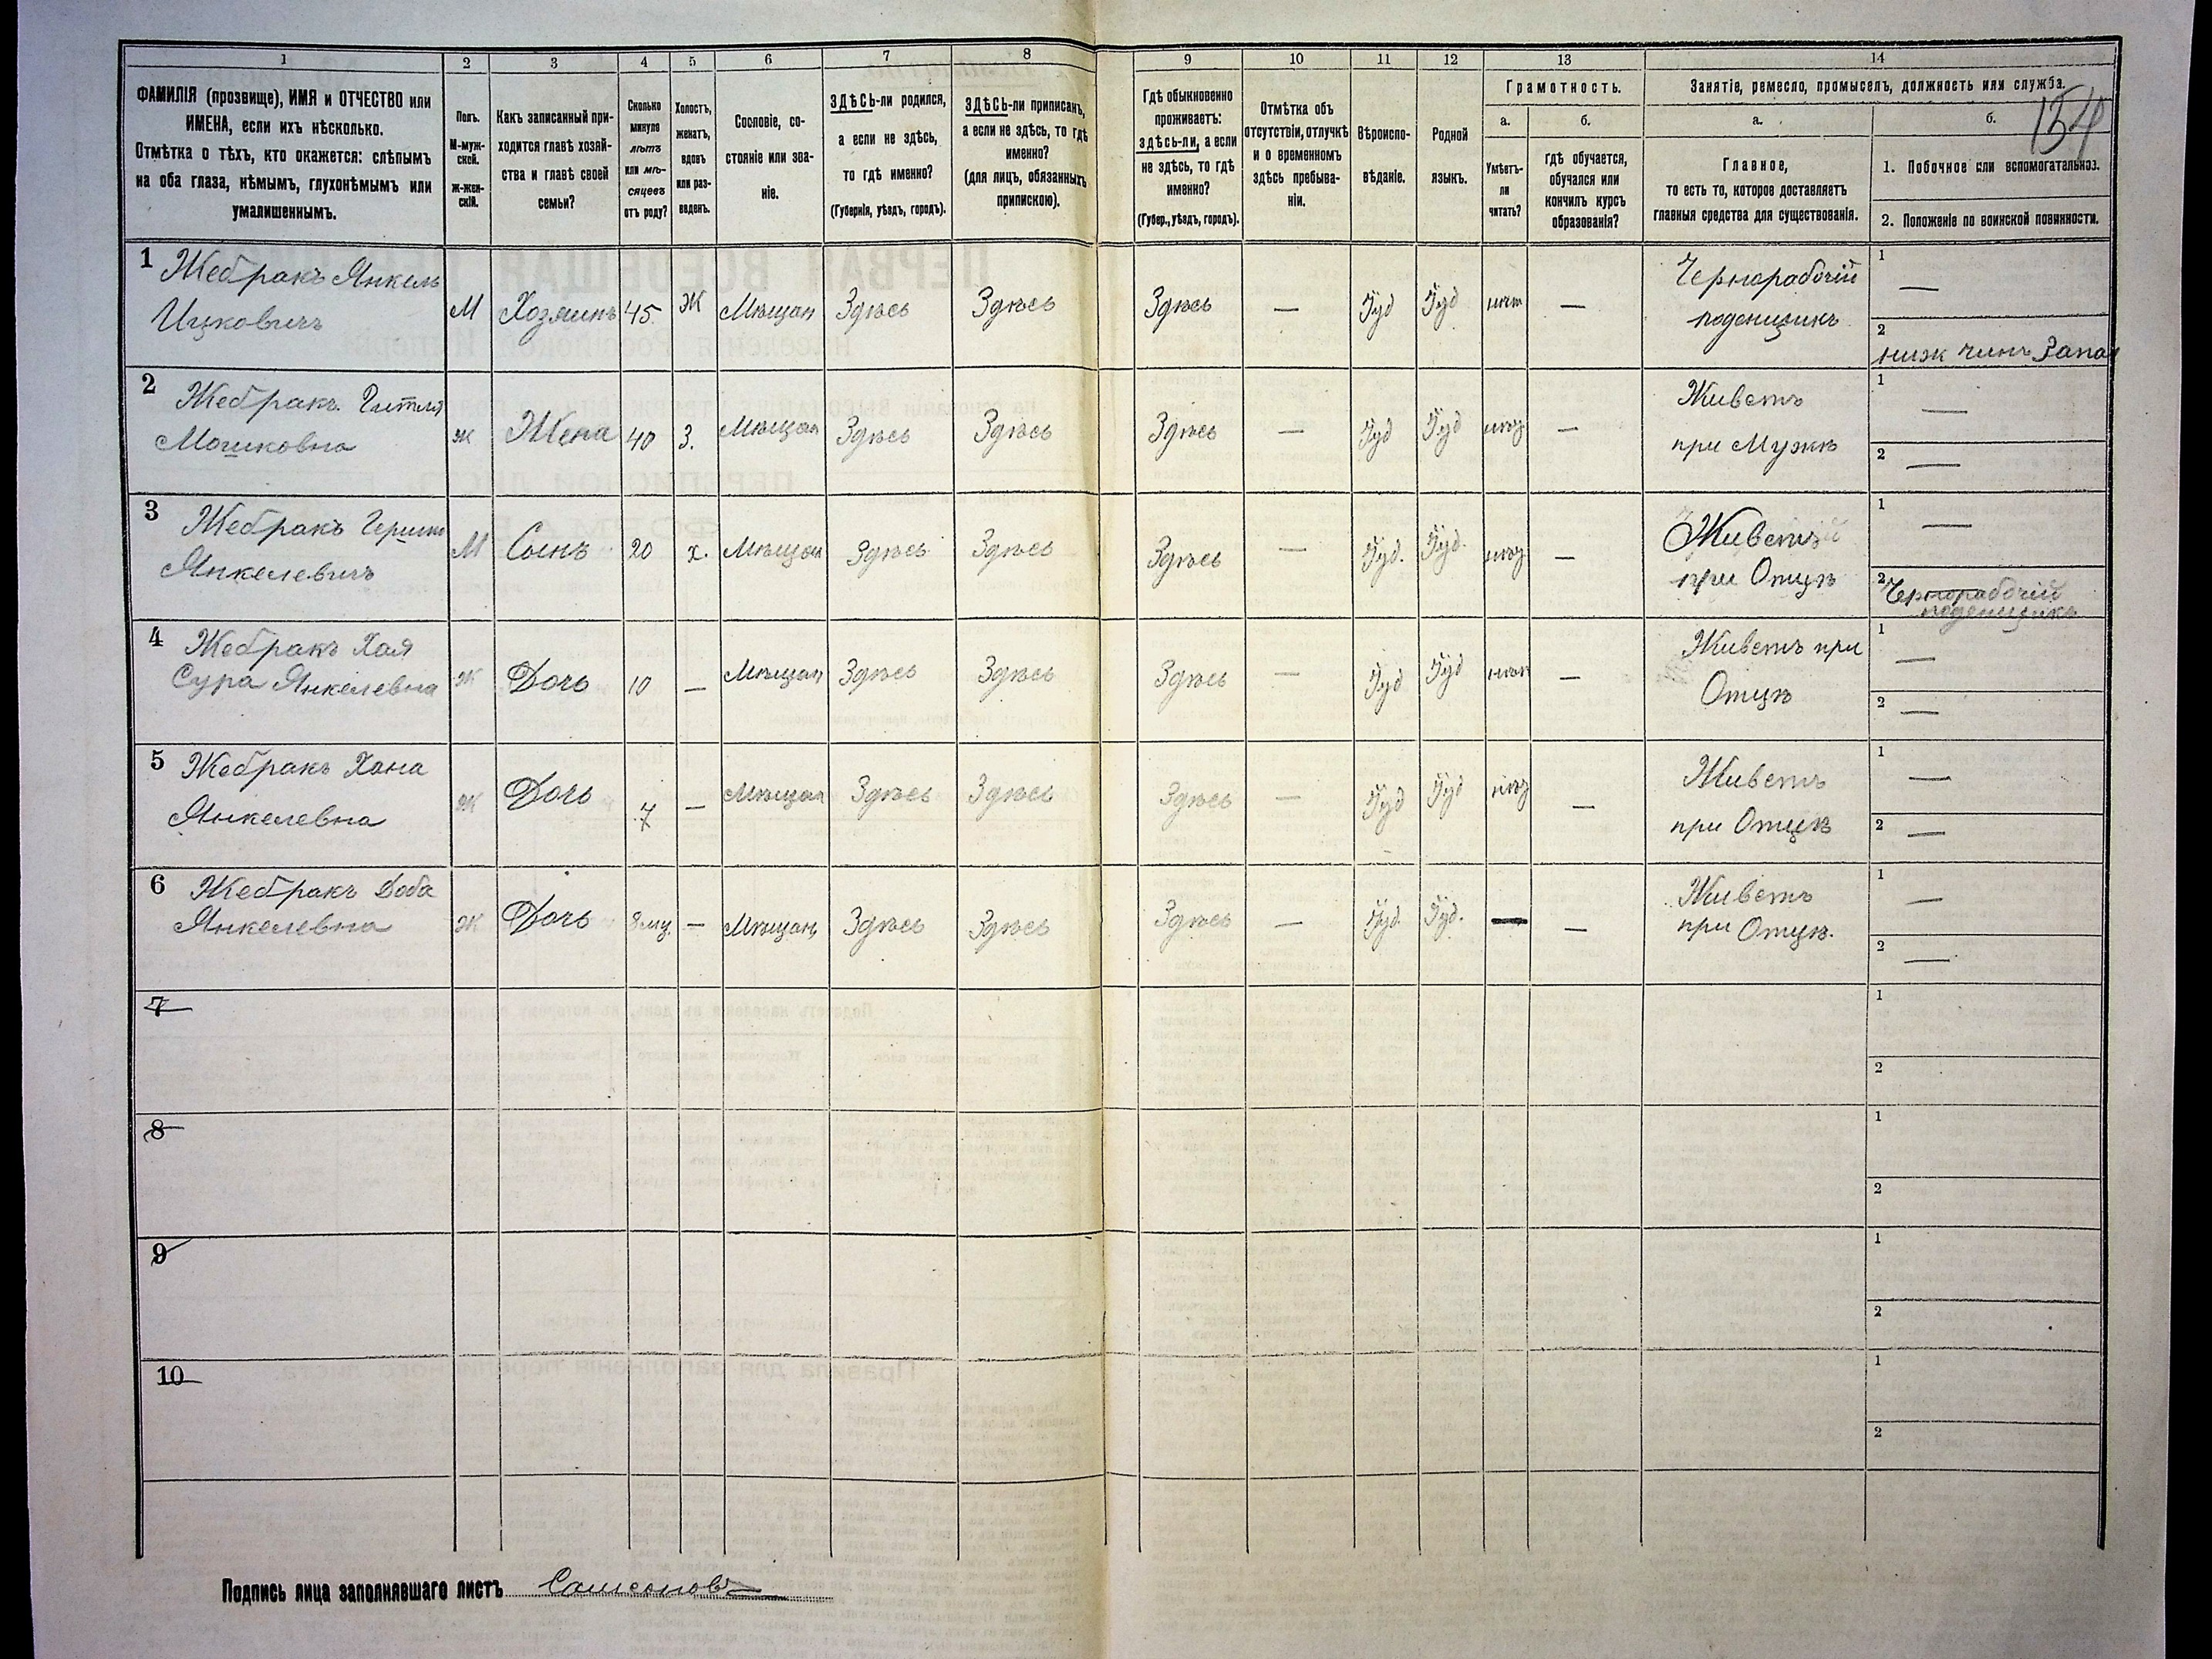 1 2 3 4 5 6 7 8 9 10 11 12 13 14
ФАМИЛІЯ (прозвище), ИМЯ и ОТЧЕСТВО или
ИМЕНА, если ихъ нѣсколько.
Отмѣтка о тѣхъ, кто окажется: слѣпымъ
на оба глаза, нѣмымъ, глухонѣмымъ или
умалишеннымъ.
Полъ.
М-муж-
ской.
Ж-жен-
скій.
Какъ записанный при-
ходится главѣ хозяй-
ства и главѣ своей
семьи?
Сколько
минуло
лѣтъ
или мѣ-
сяцевъ
отъ роду?
Холостъ,
женатъ,
вдовъ
или раз-
веденъ.
Сословіе, со-
стояніе или зва-
ніе.
ЗДѢСЬ-ли родился,
а если не здѣсь,
то гдѣ именно?
(Губернія, уѣздъ, городъ).
ЗДѢСЬ-ли приписанъ,
а если не здѣсь, то гдѣ
именно?
(для лицъ, обязанныхъ
припискою).
Гдѣ обыкновенно
проживаетъ:
здѣсь-ли, а если
не здѣсь, то гдѣ
именно?
(Губер., уѣздъ, городъ).
Отмѣтка объ
отсутствіи, отлучкѣ
и о временномъ
здѣсь пребыва-
ніи.
Вѣроиспо-
вѣданіе.
Родной
языкъ.
Грамотность.
а.
Умѣетъ-
ли
читать?
б.
гдѣ обучается,
обучался или
кончилъ курсъ
образованія?
Занятіе, ремесло, промыселъ, должность или служба.
154
а.
Главное,
то есть то, которое доставляетъ
главныя средства для существованія.
б.
1. Побочное или вспомогательное.
2. Положеніе по воинской повинности.
1 Жебракъ Янкель
Ицковичъ
М Хозяинъ 45 Ж Мѣщан Здѣсь Здѣсь Здѣсь — Іуд Іуд —
Чернорабочій
поденщикъ
1 —
2 ниж чинъ Запа
2 Жебракъ Гитля
Мошковна
ж Жена 40 З. Мѣщан Здѣсь Здѣсь Здѣсь — Іуд Іуд —
Живетъ
при Мужѣ
1 —
2 —
3 Жебракъ Гершко
Янкелевичъ
М Сынъ 20 х. Мѣщан Здѣсь Здѣсь Здѣсь — Іуд. Іуд. —
Живетъ
при Отцѣ
1 —
2 Чернорабочій
поденщикъ
4 Жебракъ Хая
Сура Янкелевна
Ж Дочь 10 — Мѣщан Здѣсь Здѣсь Здѣсь — Іуд Іуд —
Живетъ при
Отцѣ
1 —
2 —
5 Жебракъ Хана
Янкелевна
Ж Дочь 7 — Мѣщан Здѣсь Здѣсь Здѣсь — Іуд Іуд —
Живетъ
при Отцѣ
1 —
2 —
6 Жебракъ Доба
Янкелевна
Ж Дочь 8 мц. — Мѣщан, Здѣсь Здѣсь Здѣсь — Іуд. Іуд. — —
Живетъ
при Отцѣ.
1 —
2 —
7
1
2
8
1
2
9
1
2
10
1
2
Подпись лица заполнявшаго листъ